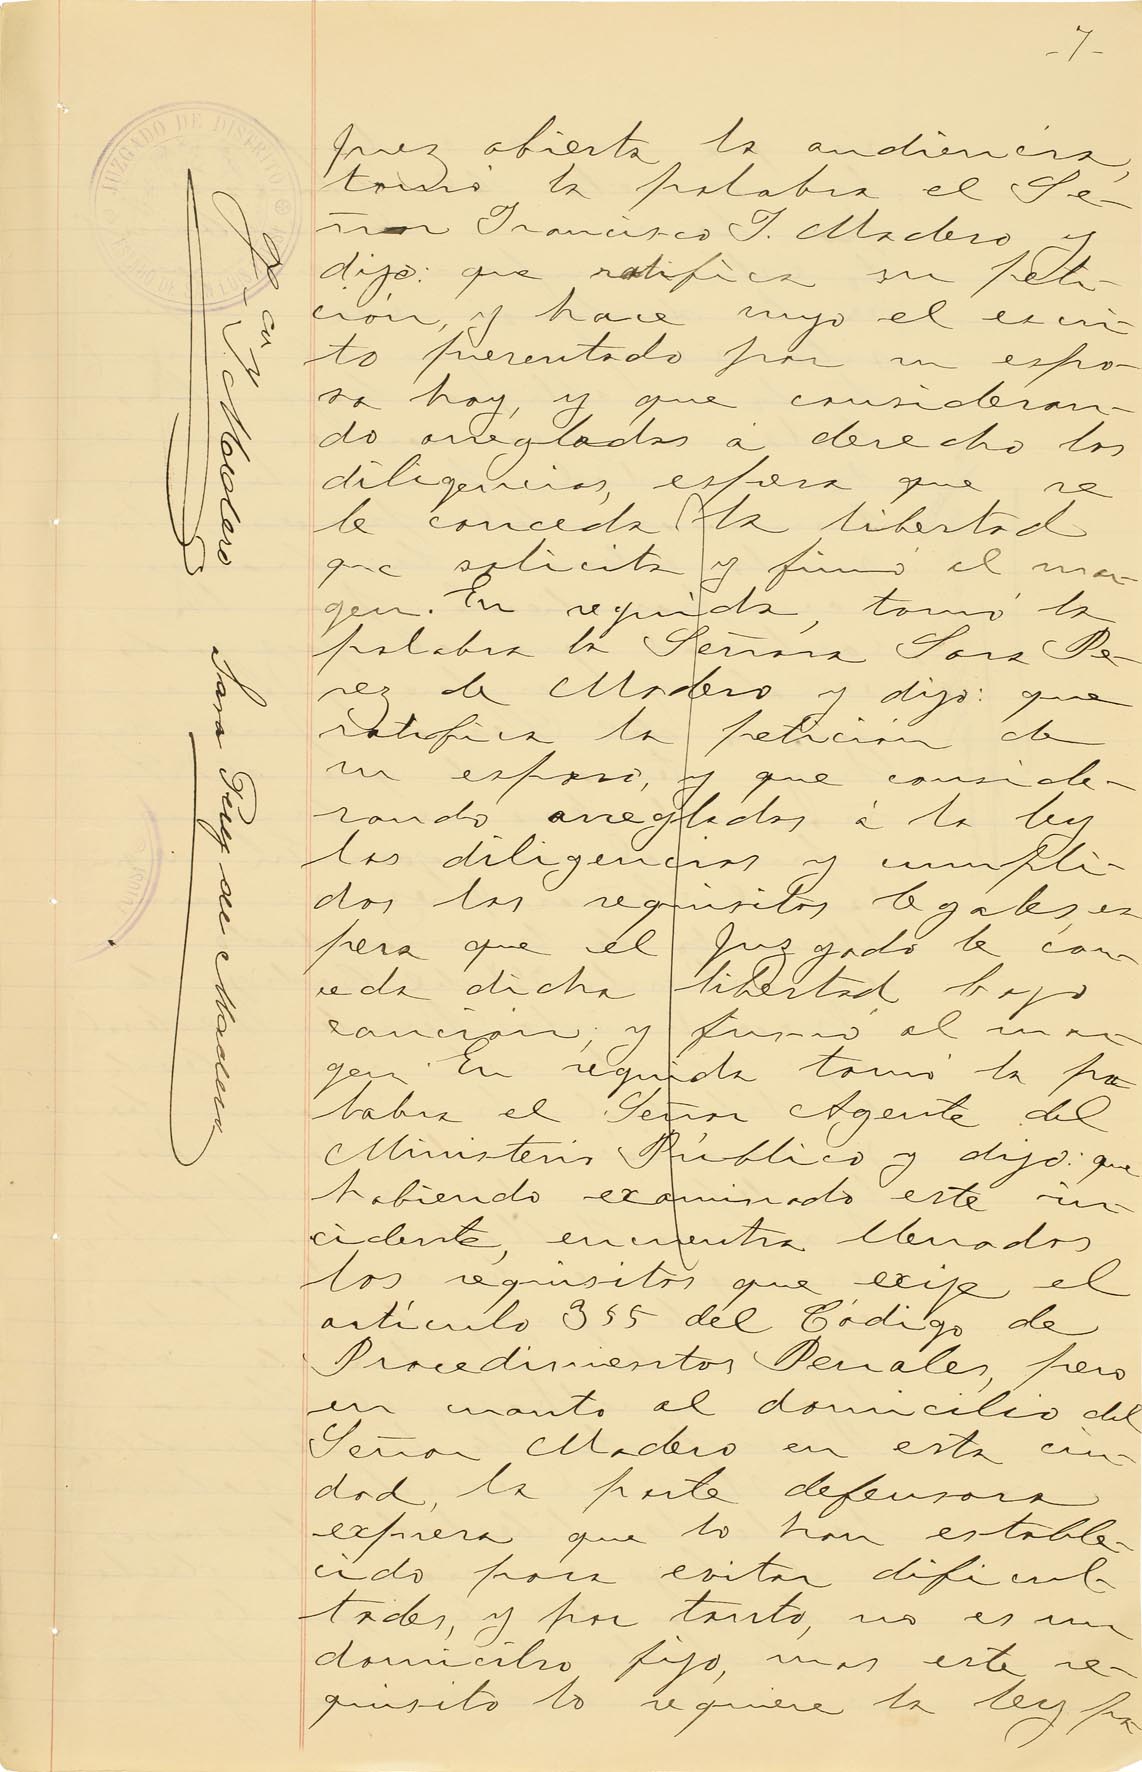 -7-
Juez abierta la audiencia,
tomó la palabra el Se-
ñor Francisco I. Madero y
dijo: que ratifica su peti-
ción, y hace suyo el escri-
to presentado por su espo-
sa hoy, y que consideran-
do arregladas á derecho las
diligencias, espera que se
le conceda la libertad
que solicita y firmó al mar-
gen. En seguida, tomó la
palabra la Señora Sara Pe-
rez de Madero y dijo: que
ratifica la petición de
su esposo, y que conside-
rando arregladas á la ley
las diligencias y cumpli-
dos los requisitos legales, es
pera que el Juzgado le con-
ceda dicha libertad bajo
caución; y firmó al mar-
gen. En seguida tomó la pa
labra el Señor Agente del
Ministerio Público y dijo: que
habiendo examinado este in-
cidente, encuentra llenados
los requisitos que exije el
artículo 355 del Código de
Procedimientos Penales, pero
en cuanto al domicilio del
Señor Madero en esta ciu-
dad, la parte defensora
expresa que lo han estable-
cido para evitar dificul-
tades, y por tanto, no es un
domicilio fijo, mas este re-
quisito lo requiere la ley pa
Fr_co I. Madero
Sara Perez de Madero
JUZGADO DE DISTRITO